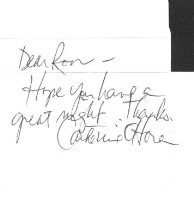 Dear Ron –
Hope you have a
great night. Thanks.
Catherine O'Hara